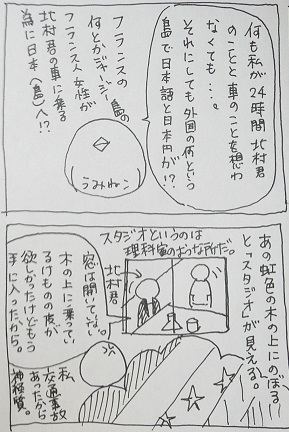 何も私が24時間北村君
のことと車のことを想わ
なくても…。
それにしても外国の何という
島で日本語と日本円が!?
フランスの
何とかジャージー島の
フランス人女性が
北村君の車に乗る
為に日本(島)へ!?
うみねこ
あの虹色の木の上にのぼる!
と「スタジオ」が見える。
スタジオというのは
理科室のような所だ。
北村君
窓は開いてない。
木の上に乗ってい
るけものの皮が
欲しかったけどもう
手に入ったから。
私
交通事故
あったから
神経質。